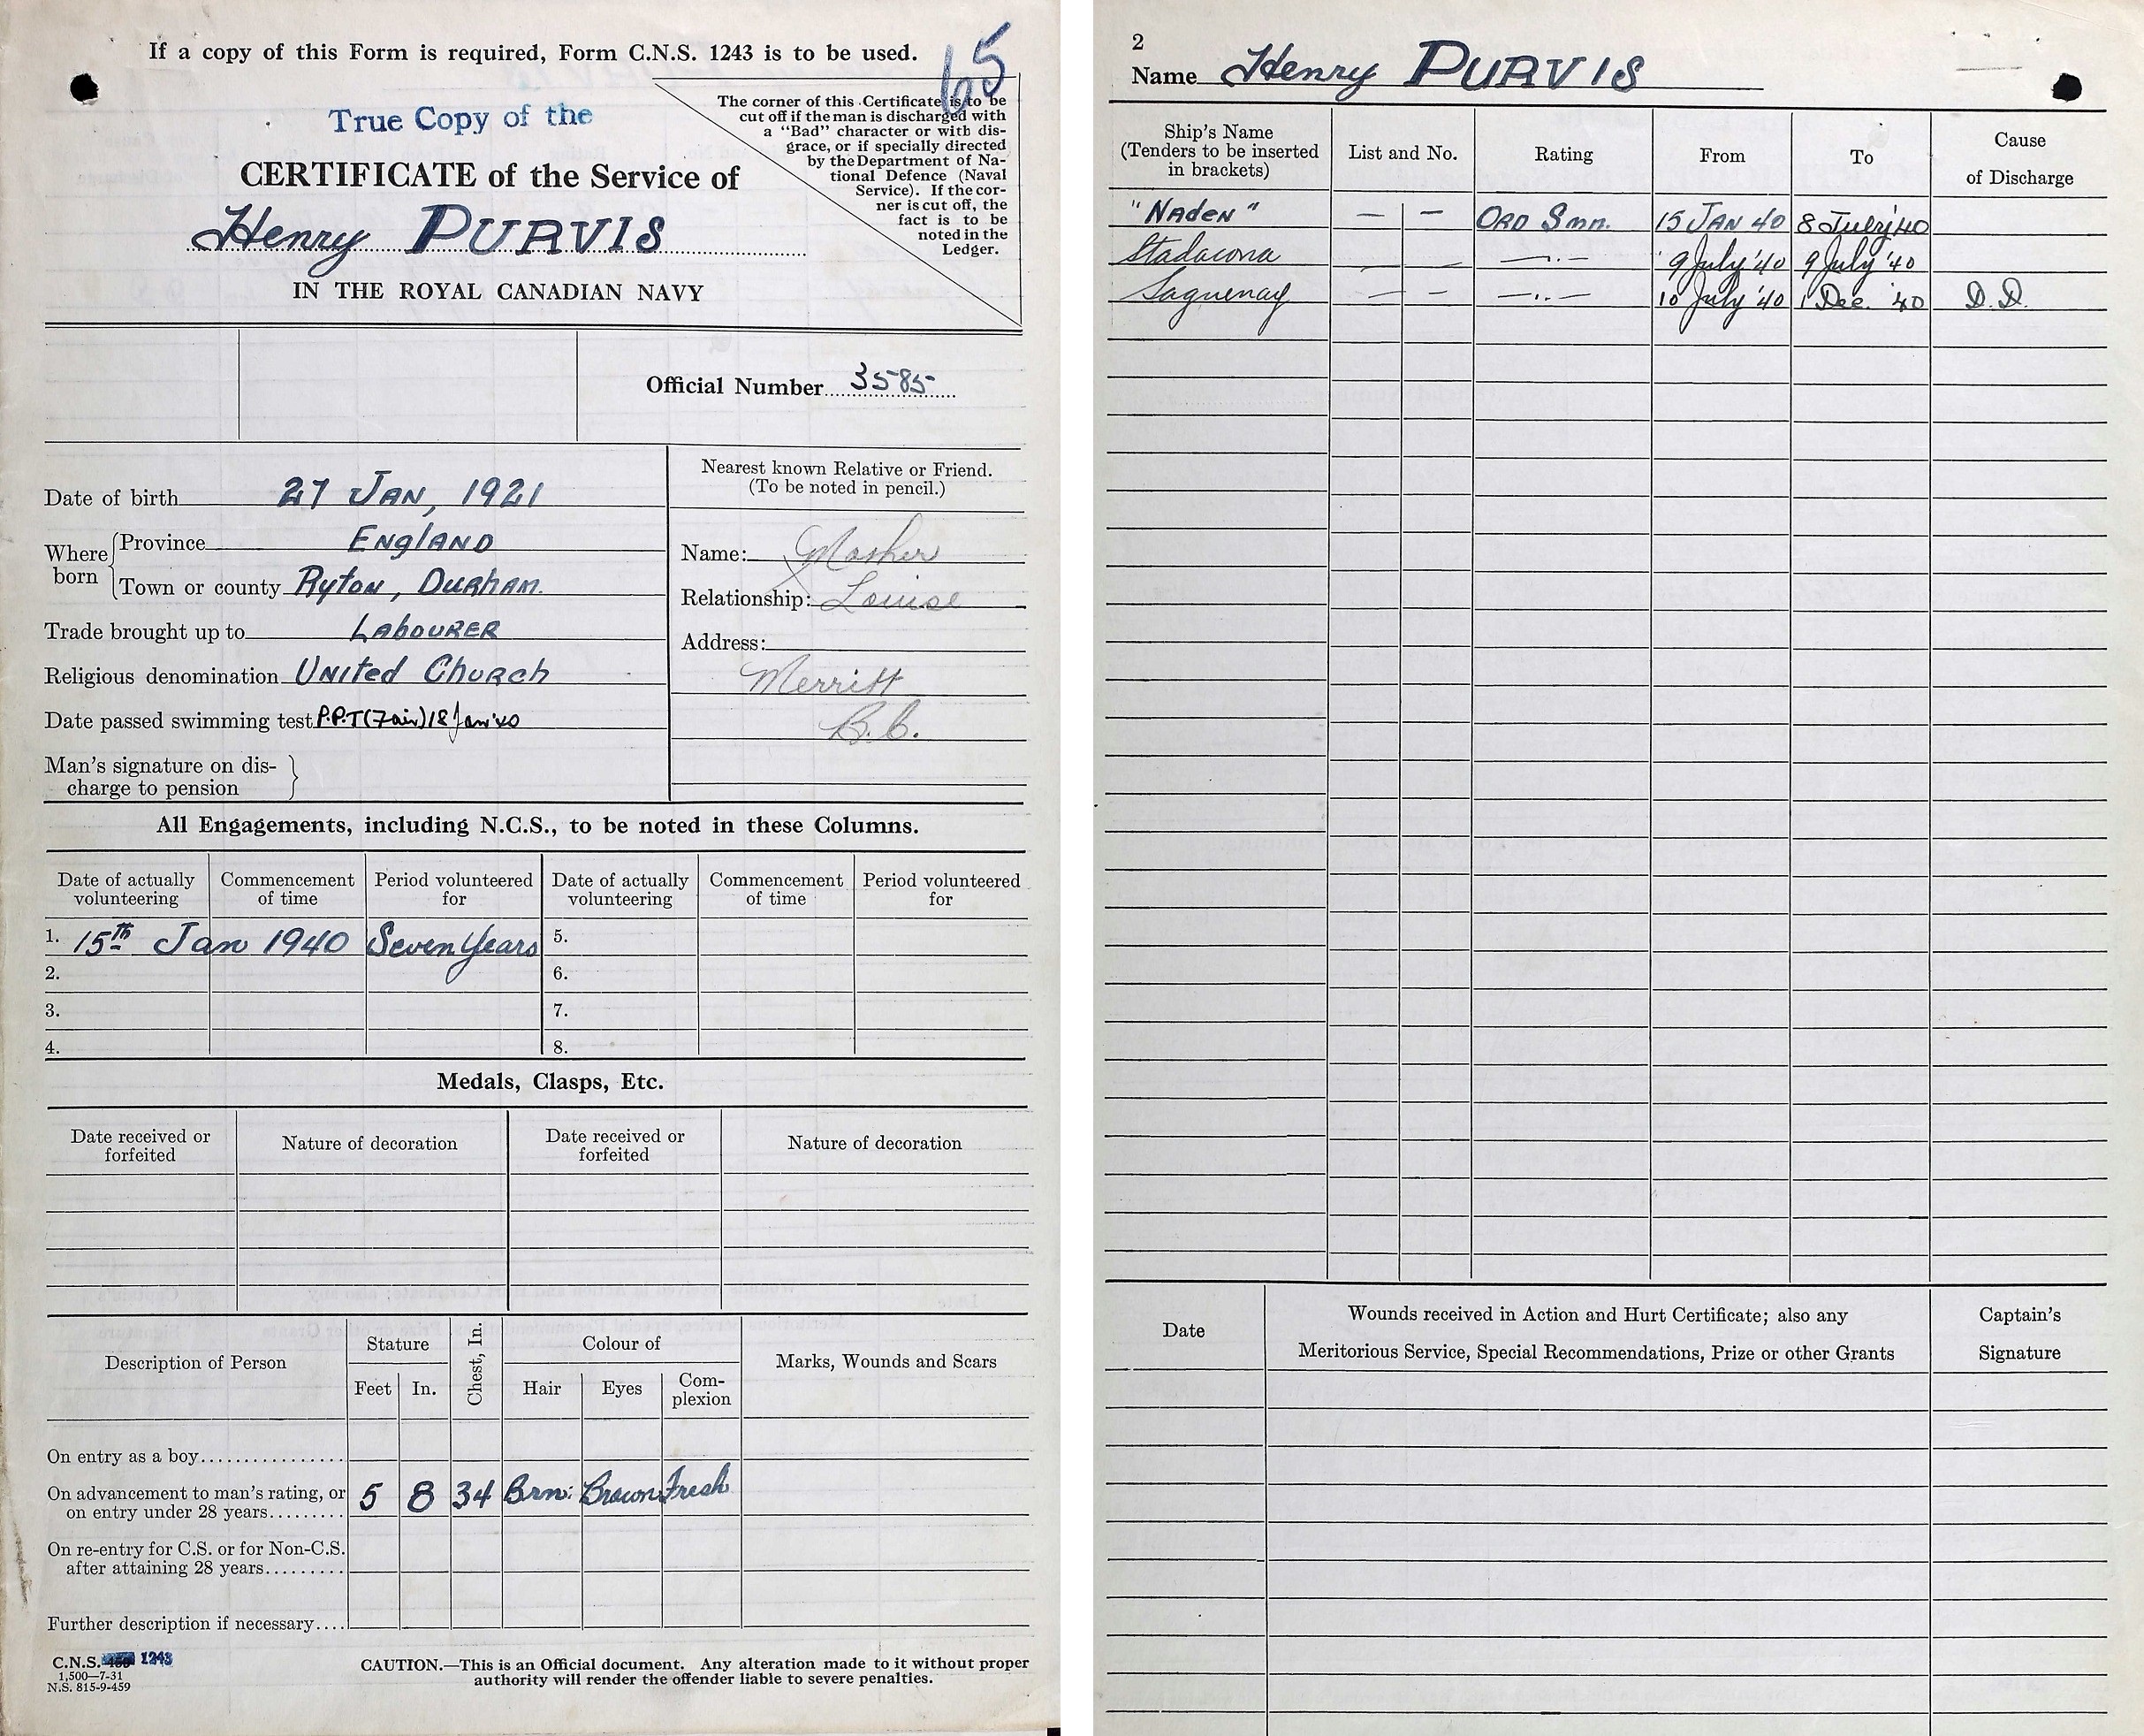 If a copy of this Form is required, Form C.N.S. 1243 is to be used.
65
True Copy of the
CERTIFICATE of the Service of
Henry PURVIS
IN THE ROYAL CANADIAN NAVY
The corner of this Certificate is to be
cut off if the man is discharged with
a "Bad" character or with dis-
grace, or if specially directed
by the Department of Na-
tional Defence (Naval
Service). If the cor-
ner is cut off, the
fact is to be
noted in the
Ledger.
Official Number 3585
Date of birth 27 JAN, 1921
Where born
Province ENglAND
Town or county Ryton, DURhAM.
Trade brought up to LAbOURER
Religious denomination UNited ChuRch
Date passed swimming test P.P.T (Fair) 18 Jan '40
Man's signature on dis-
charge to pension
Nearest known Relative or Friend.
(To be noted in pencil.)
Name: Mother
Relationship: Louise
Address:
Merritt
B.C.
All Engagements, including N.C.S., to be noted in these Columns.
Date of actually volunteering Commencement of time Period volunteered for Date of actually volunteering Commencement of time Period volunteered for
1. 15th Jan 1940 Seven Years 5.
2. 6.
3. 7.
4. 8.
Medals, Clasps, Etc.
Date received or forfeited Nature of decoration Date received or forfeited Nature of decoration
Description of Person Stature Chest, In. Colour of Marks, Wounds and Scars
Feet In. Hair Eyes Com-plexion
On entry as a boy................
On advancement to man's rating, or
on entry under 28 years......... 5 8 34 Brn: Brown Fresh
On re-entry for C.S. or for Non-C.S.
after attaining 28 years.........
Further description if necessary....
C.N.S. 1243
1,500—7-31
N.S. 815-9-459
CAUTION.—This is an Official document. Any alteration made to it without proper
authority will render the offender liable to severe penalties.
2
Name Henry PURVIS
Ship's Name (Tenders to be inserted in brackets) List and No. Rating From To Cause of Discharge
"NAdeN" — — ORD Smn. 15 JAN 40 8 July '40
Stadacona — — —"— 9 July '40 9 July '40
Saguenay — — —"— 10 July '40 1 Dec. '40 D.D.
Date Wounds received in Action and Hurt Certificate; also any Meritorious Service, Special Recommendations, Prize or other Grants Captain's Signature